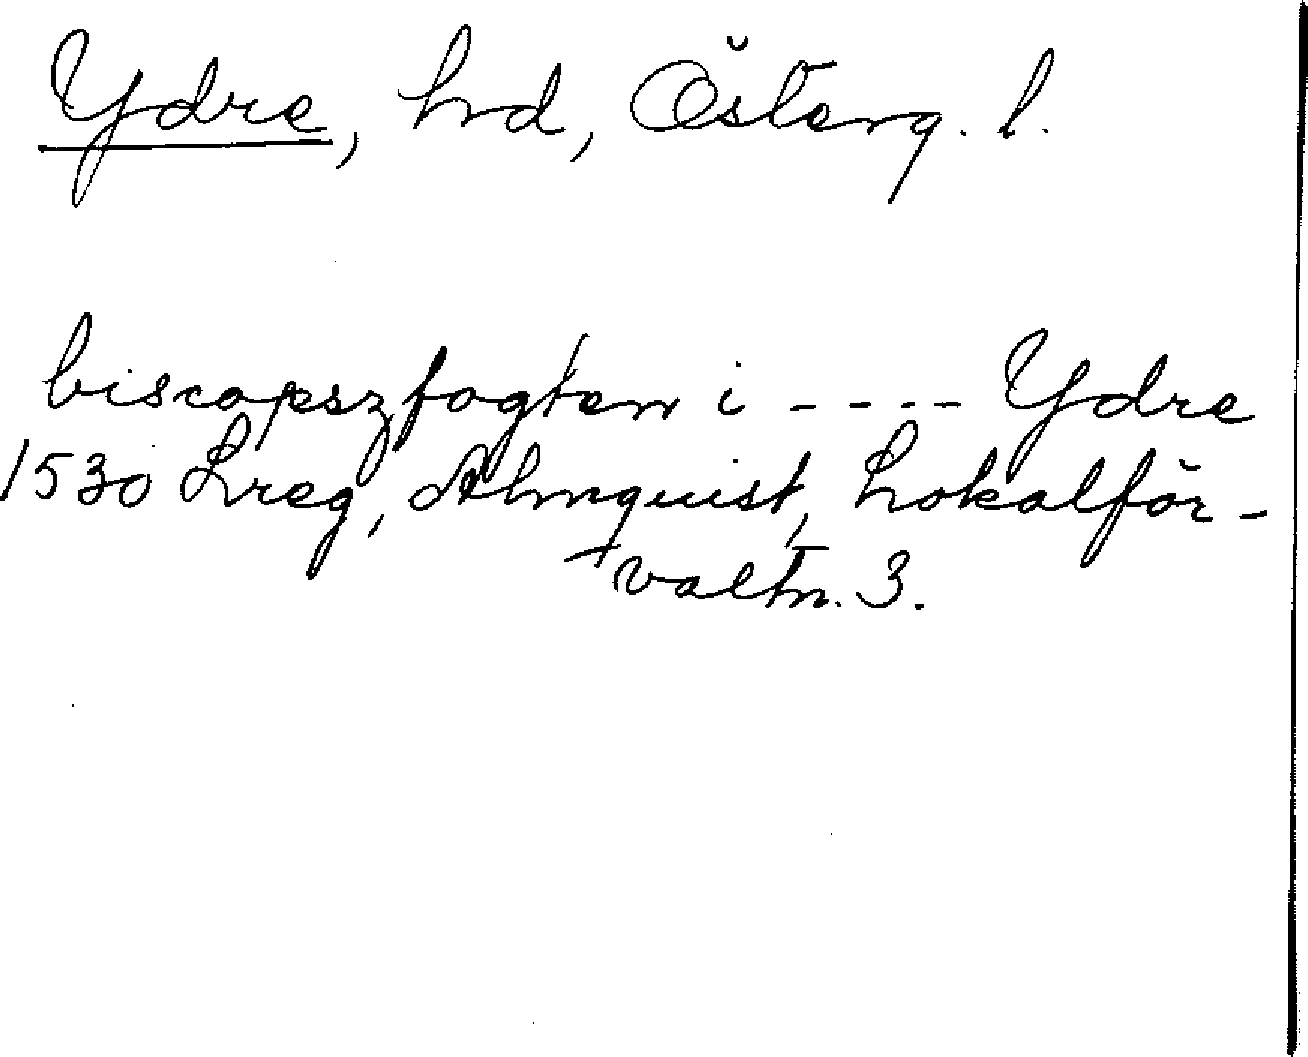 Ydre, hrd, Österg. l.
biscopszfogten i ---- Ydre
1530 Lreg, Almquist, Lokalför-
valtn. 3.